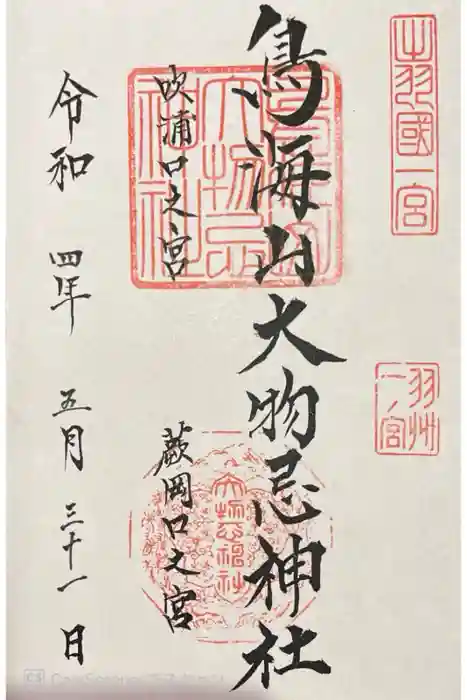 出羽國一宮
羽州一ノ宮
鳥海山大物忌神社
吹浦口之宮
蕨岡口之宮
大物忌神社
令和四年五月三十一日